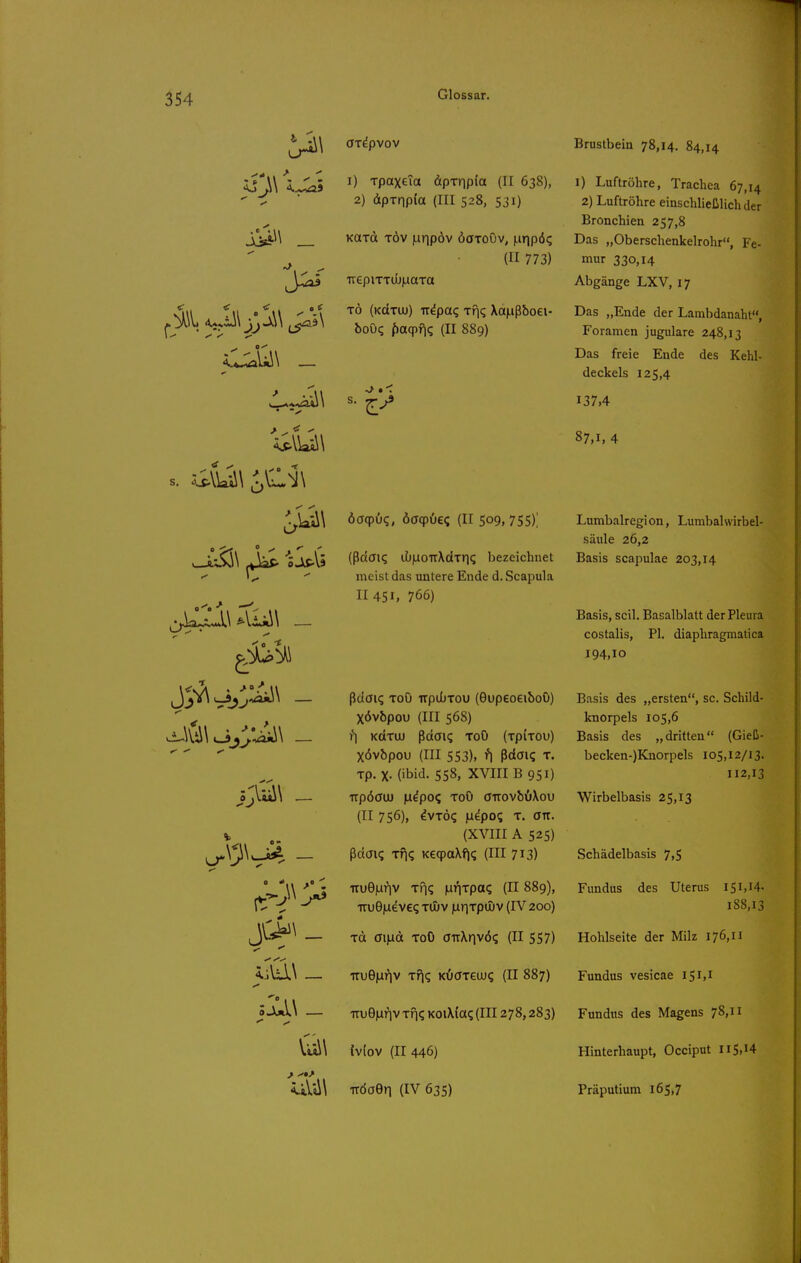 354 Glossar.
القصّ στέρνον Brustbein 78,14. 84,14
قصبة الرئة 1) τραχεῖα ἀρτηρία (II 638), 1) Luftröhre, Trachea 67,14
2) ἀρτηρία (III 528, 531) 2) Luftröhre einschließlich der
Bronchien 257,8
— الفخذ κατὰ τὸν μηρὸν ὀστοῦν, μηρός Das „Oberschenkelrohr“, Fe-
(II 773) mur 330,14
فضل περιττώματα Abgänge LXV, 17
أقصى الدرز الشبيه باللام τὸ (κάτω) πέρας τῆς λάμβδοει- Das „Ende der Lambdanaht“,
δοῦς ῥαφῆς (II 889) Foramen jugulare 248,13
— الغلصمة Das freie Ende des Kehl-
deckels 125,4
القضيب s. فرج 137,4
القطاعة 87,1, 4
s. الأسنان القطاعة
القطن ὀσφύς, ὀσφύες (II 509, 755) Lumbalregion, Lumbalwirbel-
säule 26,2
قاعدة عظم الكتف (βάσις ὠμοπλάτης bezeichnet Basis scapulae 203,14
meist das untere Ende d. Scapula
II 451, 766)
— الغشاء المستبطن Basis, scil. Basalblatt der Pleura
costalis, Pl. diaphragmatica
الأضلاع 194,10
— الغضروف الأول βάσις τοῦ πρώτου (θυρεοειδοῦ) Basis des „ersten“, sc. Schild-
χόνδρου (III 568) knorpels 105,6
— الغضروف الثالث ἡ κάτω βάσις τοῦ (τρίτου) Basis des „dritten“ (Gieß-
χόνδρου (III 553), ἡ βάσις τ. becken-)Knorpels 105,12/13.
τρ. χ. (ibid. 558, XVIII B 951) 112,13
— الفقارة πρόσω μέρος τοῦ σπονδύλου Wirbelbasis 25,13
(II 756), ἐντὸς μέρος τ. σπ.
(XVIII A 525)
— قحف الرأس βάσις τῆς κεφαλῆς (III 713) Schädelbasis 7,5
قعر الرحم πυθμὴν τῆς μήτρας (II 889), Fundus des Uterus 151,14.
πυθμένες τῶν μητρῶν (IV 200) 188,13
— الطحال τὰ σιμὰ τοῦ σπληνός (II 557) Hohlseite der Milz 176,11
— المثانة πυθμὴν τῆς κύστεως (II 887) Fundus vesicae 151,1
— المعدة πυθμὴν τῆς κοιλίας (III 278, 283) Fundus des Magens 78,11
القفا ἰνίον (II 446) Hinterhaupt, Occiput 115,14
القلفة πόσθη (IV 635) Präputium 165,7